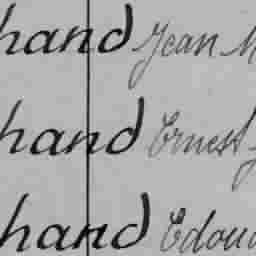 hand Jean M
hand Ernest J
hand Edoua